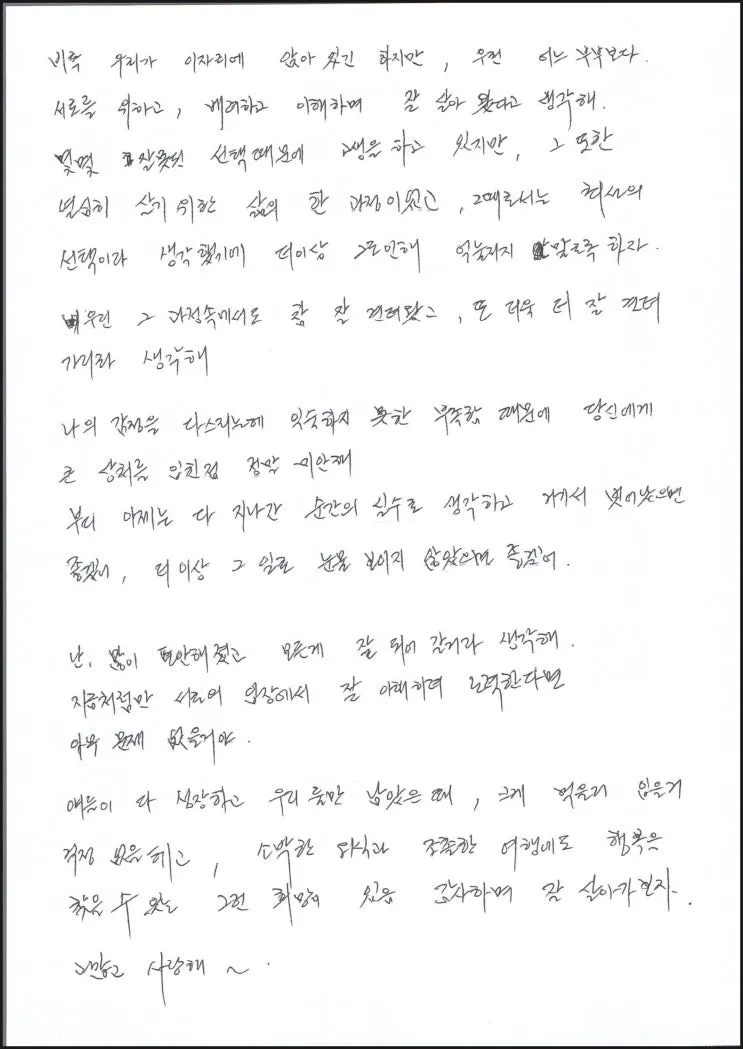 비록 우리가 이자리에 앉아 있긴 하지만, 우린 어느 부부보다.
서로를 위하고, 배려하고 이해하며 잘 살아 왔다고 생각해.
몇몇 잘못된 선택때문에 고생을 하고 있지만, 그 또한
열심히 살기 위한 삶의 한 과정이었고, 그때로서는 최선의
선택이라 생각했기에 더이상 그로인해 억눌려지 말도록 하자.
우린 그 과정속에서도 참 잘 견뎌왔고, 또 더욱 더 잘 견뎌
가리라 생각해
나의 감정을 다스리는데 익숙하지 못한 부족함 때문에 당신에게
큰 상처를 입힌점 정말 미안해
부디 이제는 다 지나간 순간의 실수로 생각하고 거기서 벗어났으면
좋겠어, 더 이상 그 일로 눈물 보이지 않았으면 좋겠어.
난, 많이 편안해졌고 모든게 잘 되어 갈거라 생각해.
지금처럼만 서로의 입장에서 잘 이해하며 노력한다면
아무 문제 없을거야.
애들이 다 성장하고 우리 둘만 남았을 때, 크게 먹을거 입을거
걱정 없을테고, 소박한 외식과 조촐한 여행에도 행복을
찾을 수 있는 그런 희망이 있음 감사하며 잘 살아가보자.
고맙고 사랑해 ~.